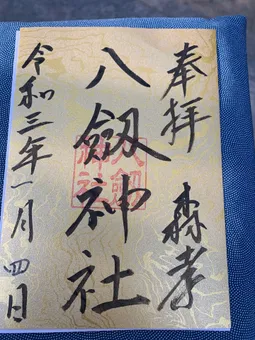 奉拝 森孝
八劔神社
八劔神社
令和三年一月四日